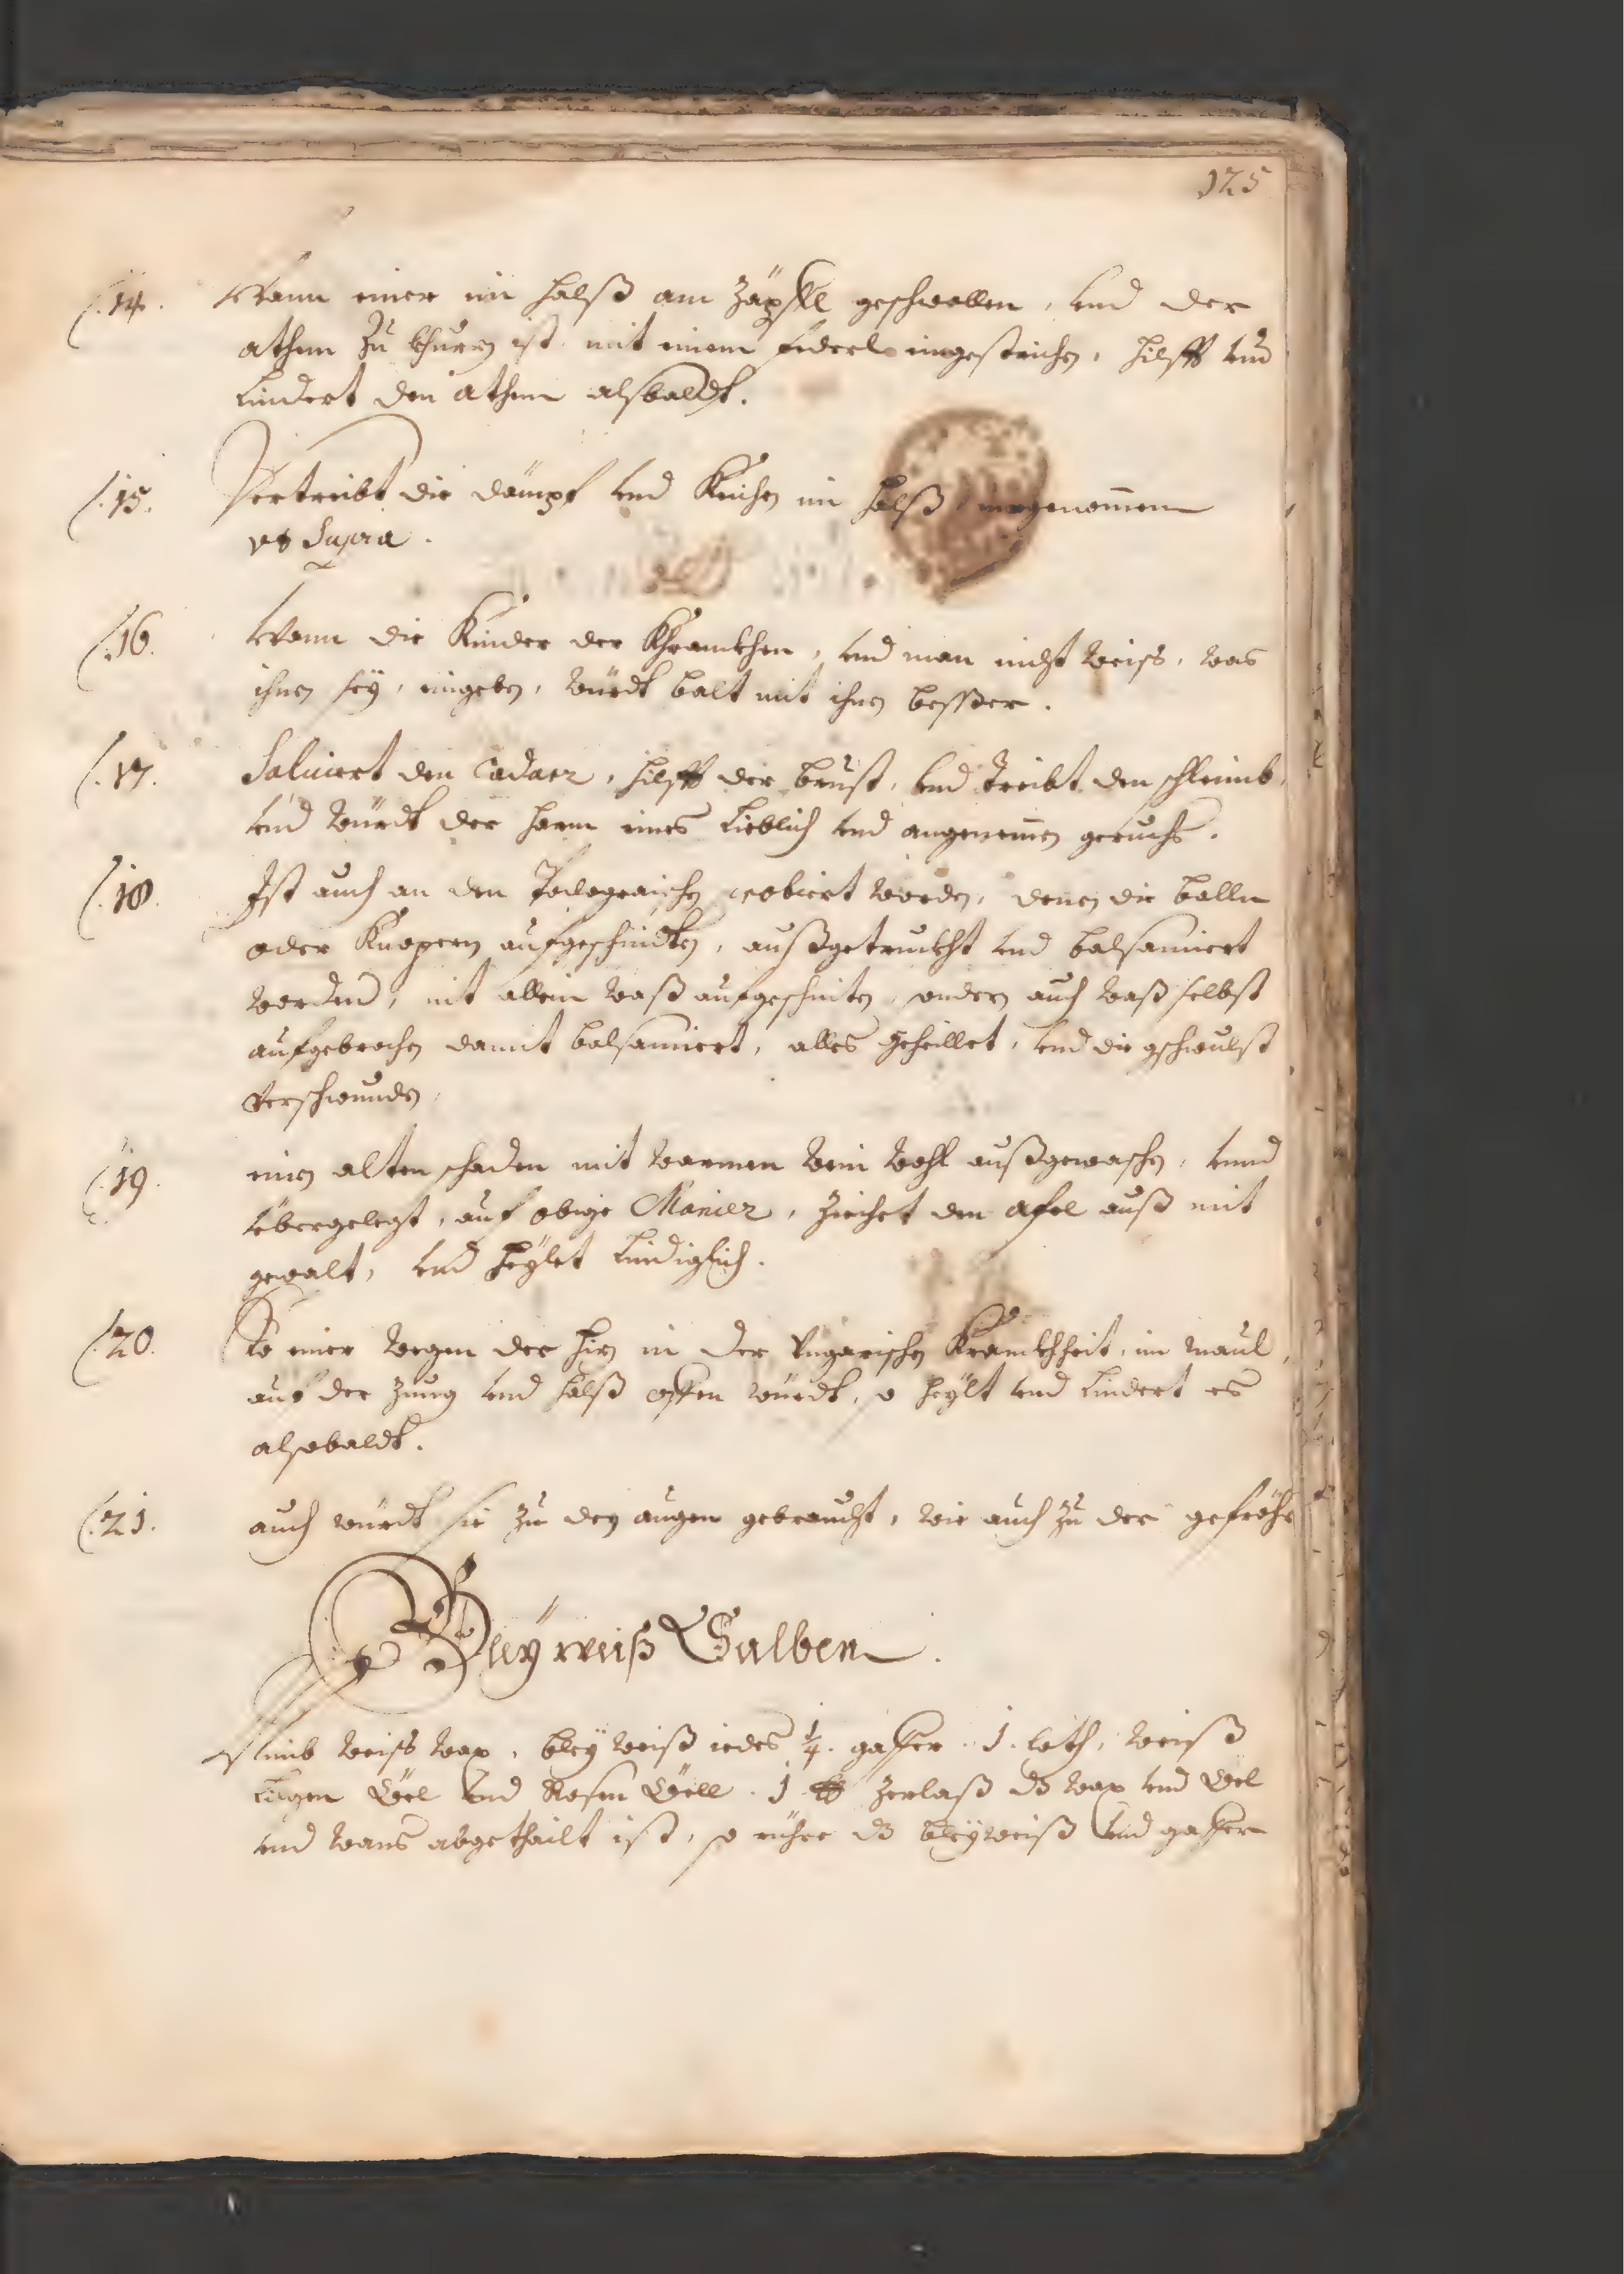 125
14. Wann einer im halß am Zäpffl geschwollen, vnd der
athem zu khurz ist, mit einem federl eingestrichen, hilfft vnd
Lindert den athem alsbaldt.
15. Vertreibt die dämpf vnd Keichen im halß, eingenommen
vt Supra.
16. Wann die Kinder der Khrankhen, vnd man nicht weiss, was
ihnen sey, eingeben, würdt balt mit ihnen besser.
17. Salviert den Cadarr, hilfft der brust, vnd treibt den schleimb,
vnd würdt der harm eines Lieblich vnd angenemen geruchs.
18. Ist auch an den Podograischen probiert worden, denen die balln
oder Knopern aufgeschnidten, außgetruckht vnd balsamiert
worden, nit allein waß aufgeschniten, sondern auch waß selbst
aufgebrochen damit balsamiert, alles geheillet, vnd die gschwulst
verschwunden.
19. einen alten schaden mit warmen wein wohl außgewaschen, vnnd
vbergelegt, auf obige Manier, ziehet den afel auß mit
gewalt, vnd heylet Lindiglich.
20. So einer wegen der hiz in der Vngarischen Krankhheit, im maul,
auf der Zung vnd halß offen würdt, so heylt vnd Lindert es
alsobaldt.
21. auch würdt sie zu den augen gebraucht, wie auch zu der gefröhr
Bleyweiß Salben.
Nimb weiss wax, bleyweiß iedes ¼. gaffer. 1. loth, weiß
Lilgen Öel vnd Rosen Öell. 1 ℔ zerlaß dz wax vnd Öel
vnd wans abgethailt ist, so rühre dz bleyweiß vnd gaffer